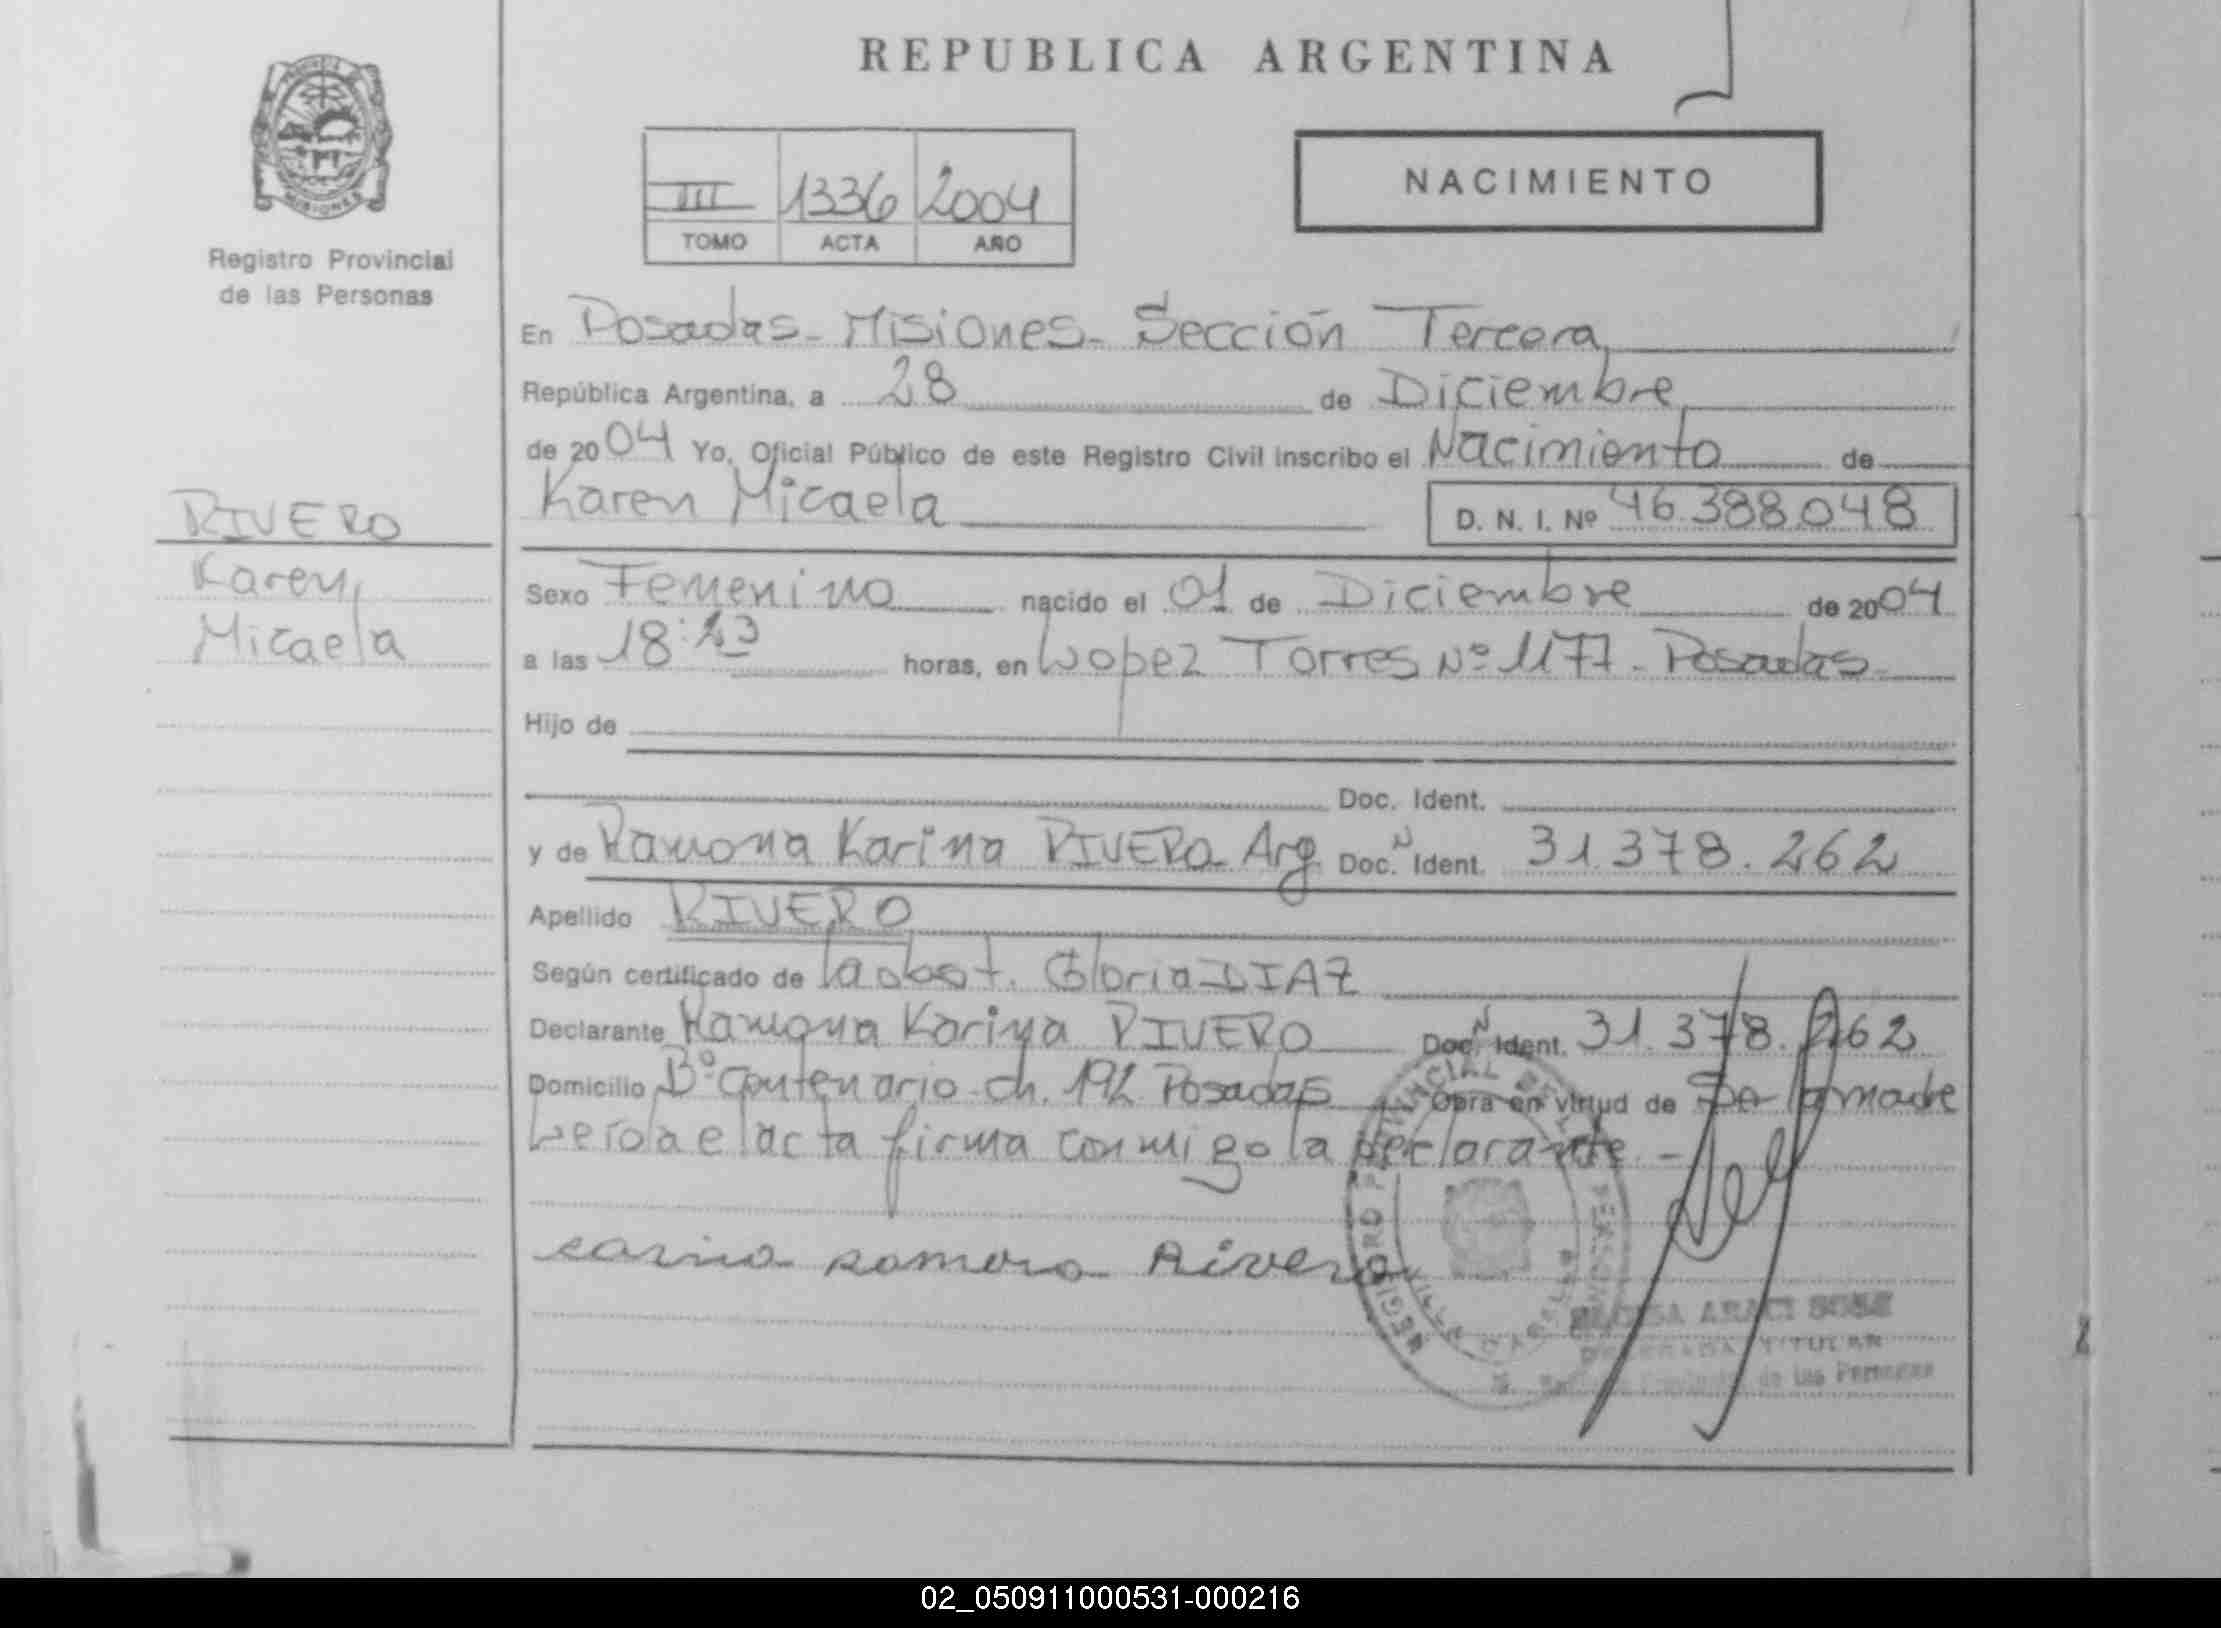 REPUBLICA ARGENTINA
NACIMIENTO
III 1336 2004
TOMO ACTA AÑO
MISIONES
Registro Provincial
de las Personas
RIVERO
Karen
Micaela
En Posadas - Misiones - Sección Tercera
República Argentina, a 28 de Diciembre
de 2004 Yo, Oficial Público de este Registro Civil inscribo el Nacimiento de
Karen Micaela D. N. I. Nº 46.388.048
Sexo Femenino nacido el 01 de Diciembre de 2004
a las 18: horas, en Lopez Torres Nº 1177 - Posadas
Hijo de
Doc. Ident.
y de Ramona Karina RIVERO - Arg. Doc. N Ident. 31.378.262
Apellido RIVERO
Según certificado de la obst. Gloria DIAZ
Declarante Ramona Karina RIVERO Doc. N Ident. 31.378.262
Domicilio Bº Centenario - ch. 192 Posadas Obra en virtud de Ser la madre
Leida el acta firma conmigo la declarante. -
carina Ramona Rivero
REGISTRO PROVINCIAL DE LAS PERSONAS
ARACI
TITULAR
de las Personas
02_050911000531-000216